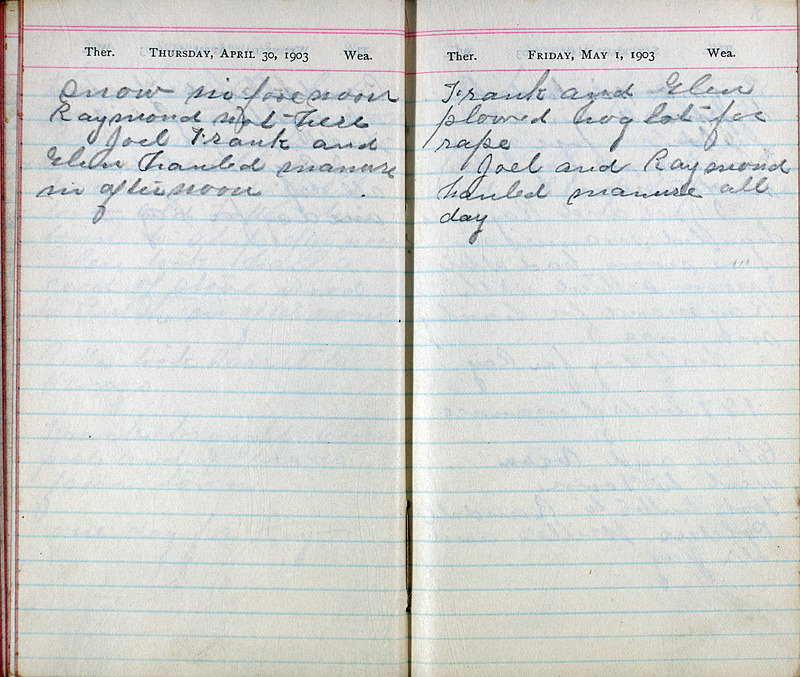 Ther. THURSDAY, APRIL 30, 1903 Wea.
Snow in forenoon
Raymond not here
Joel Frank and
Glen hauled manure
in afternoon
Ther. FRIDAY, MAY 1, 1903 Wea.
Frank and Glen
plowed hog lot for
rape
Joel and Raymond
hauled manure all
day